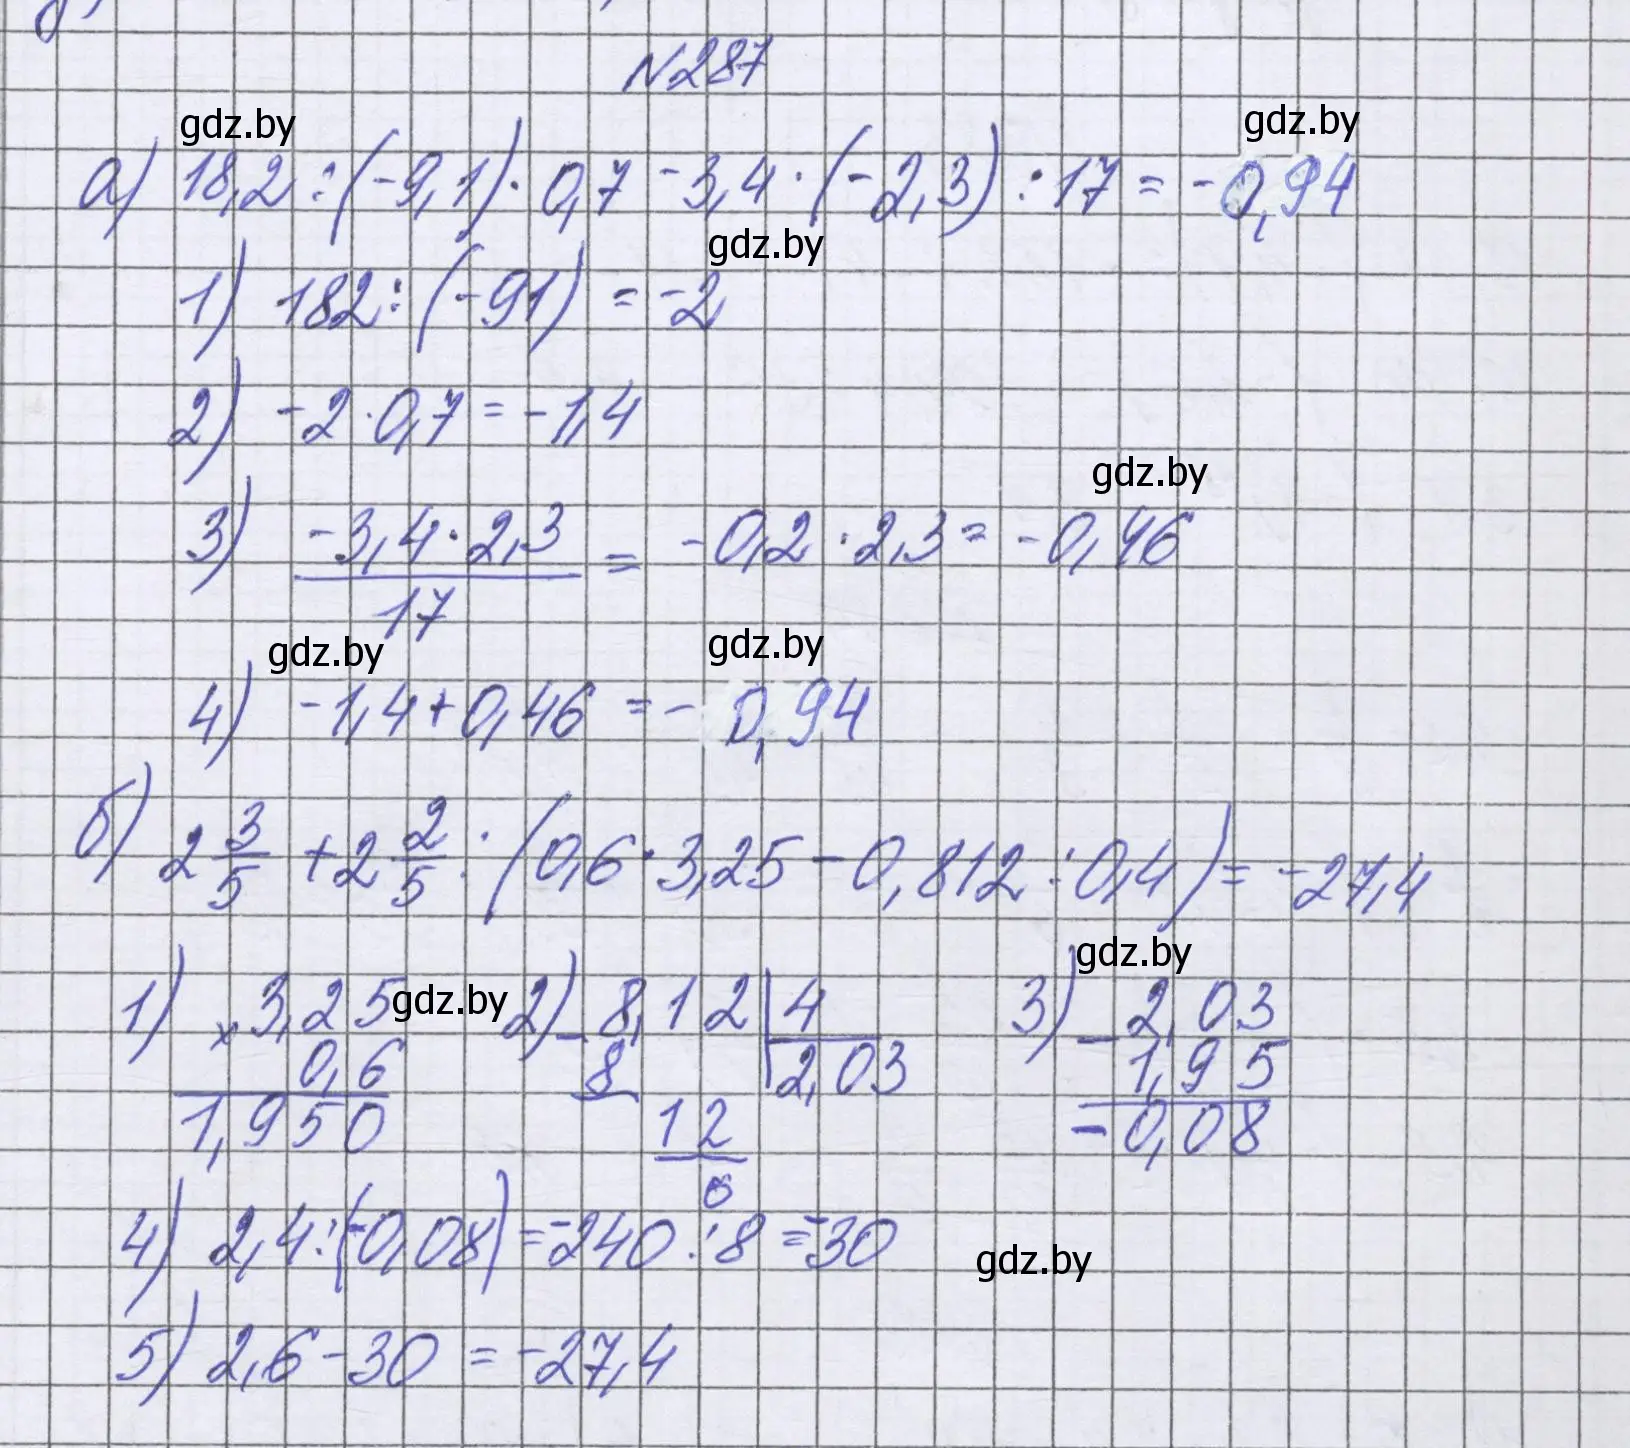 N287
gdz.by
gdz.by
а) 18,2 : (-9,1) · 0,7 - 3,4 · (-2,3) : 17 = -0,94
gdz.by
1) 182 : (-91) = -2
2) -2 · 0,7 = -1,4
gdz.by
3) -3,4 · 2,3 / 17 = -0,2 · 2,3 = -0,46
gdz.by
gdz.by
4) -1,4 + 0,46 = -0,94
б) 2 3/5 + 2 2/5 : (0,6 · 3,25 - 0,812 : 0,4) = -27,4
gdz.by
1) × 3,25 gdz.by 2) - 8,12 | 4 3) - 2,03
0,6 8 2,03 1,95
1,950 12 -0,08
0
4) 2,4 : (-0,08) = -240 : 8 = -30
gdz.by
5) 2,6 - 30 = -27,4